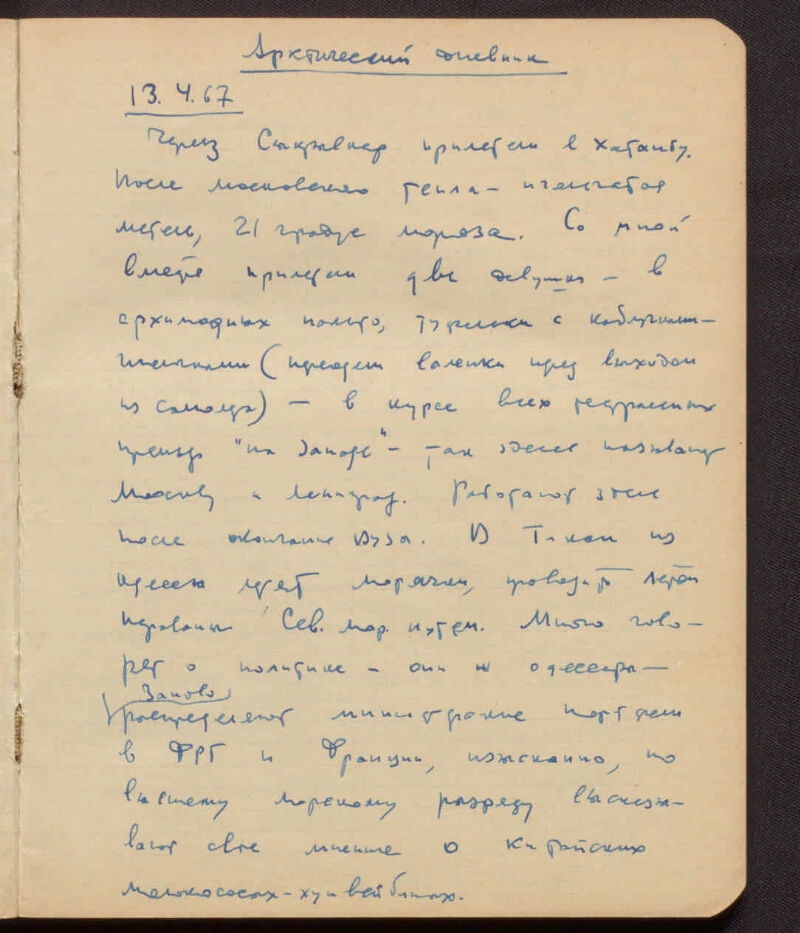 Арктический дневник
13.4.67
Через Сыктывкар прилетели в Хатангу.
После московского тепла –
метель, 21 градус мороза. Со мной
вместе прилетели две девушки – в
архимодных пальто, туфельки с каблучками–
шпильками (валенки перед выходом
из самолета) – в курсе всех театральных
премьер "на Западе" – так здесь называют
Москву и Ленинград. Работают здесь
после окончания вуза. В Тикси из
Одессы едут морячки, проводить
Сев. мор. путем. Много гово–
рят о политике – они ж одесситы –
Заново
распределяют министерские портфели
в ФРГ и Франции, изысканно, по
высшему морскому разряду высказы–
вают свое мнение о китайских
молокососах – хунвейбинах.